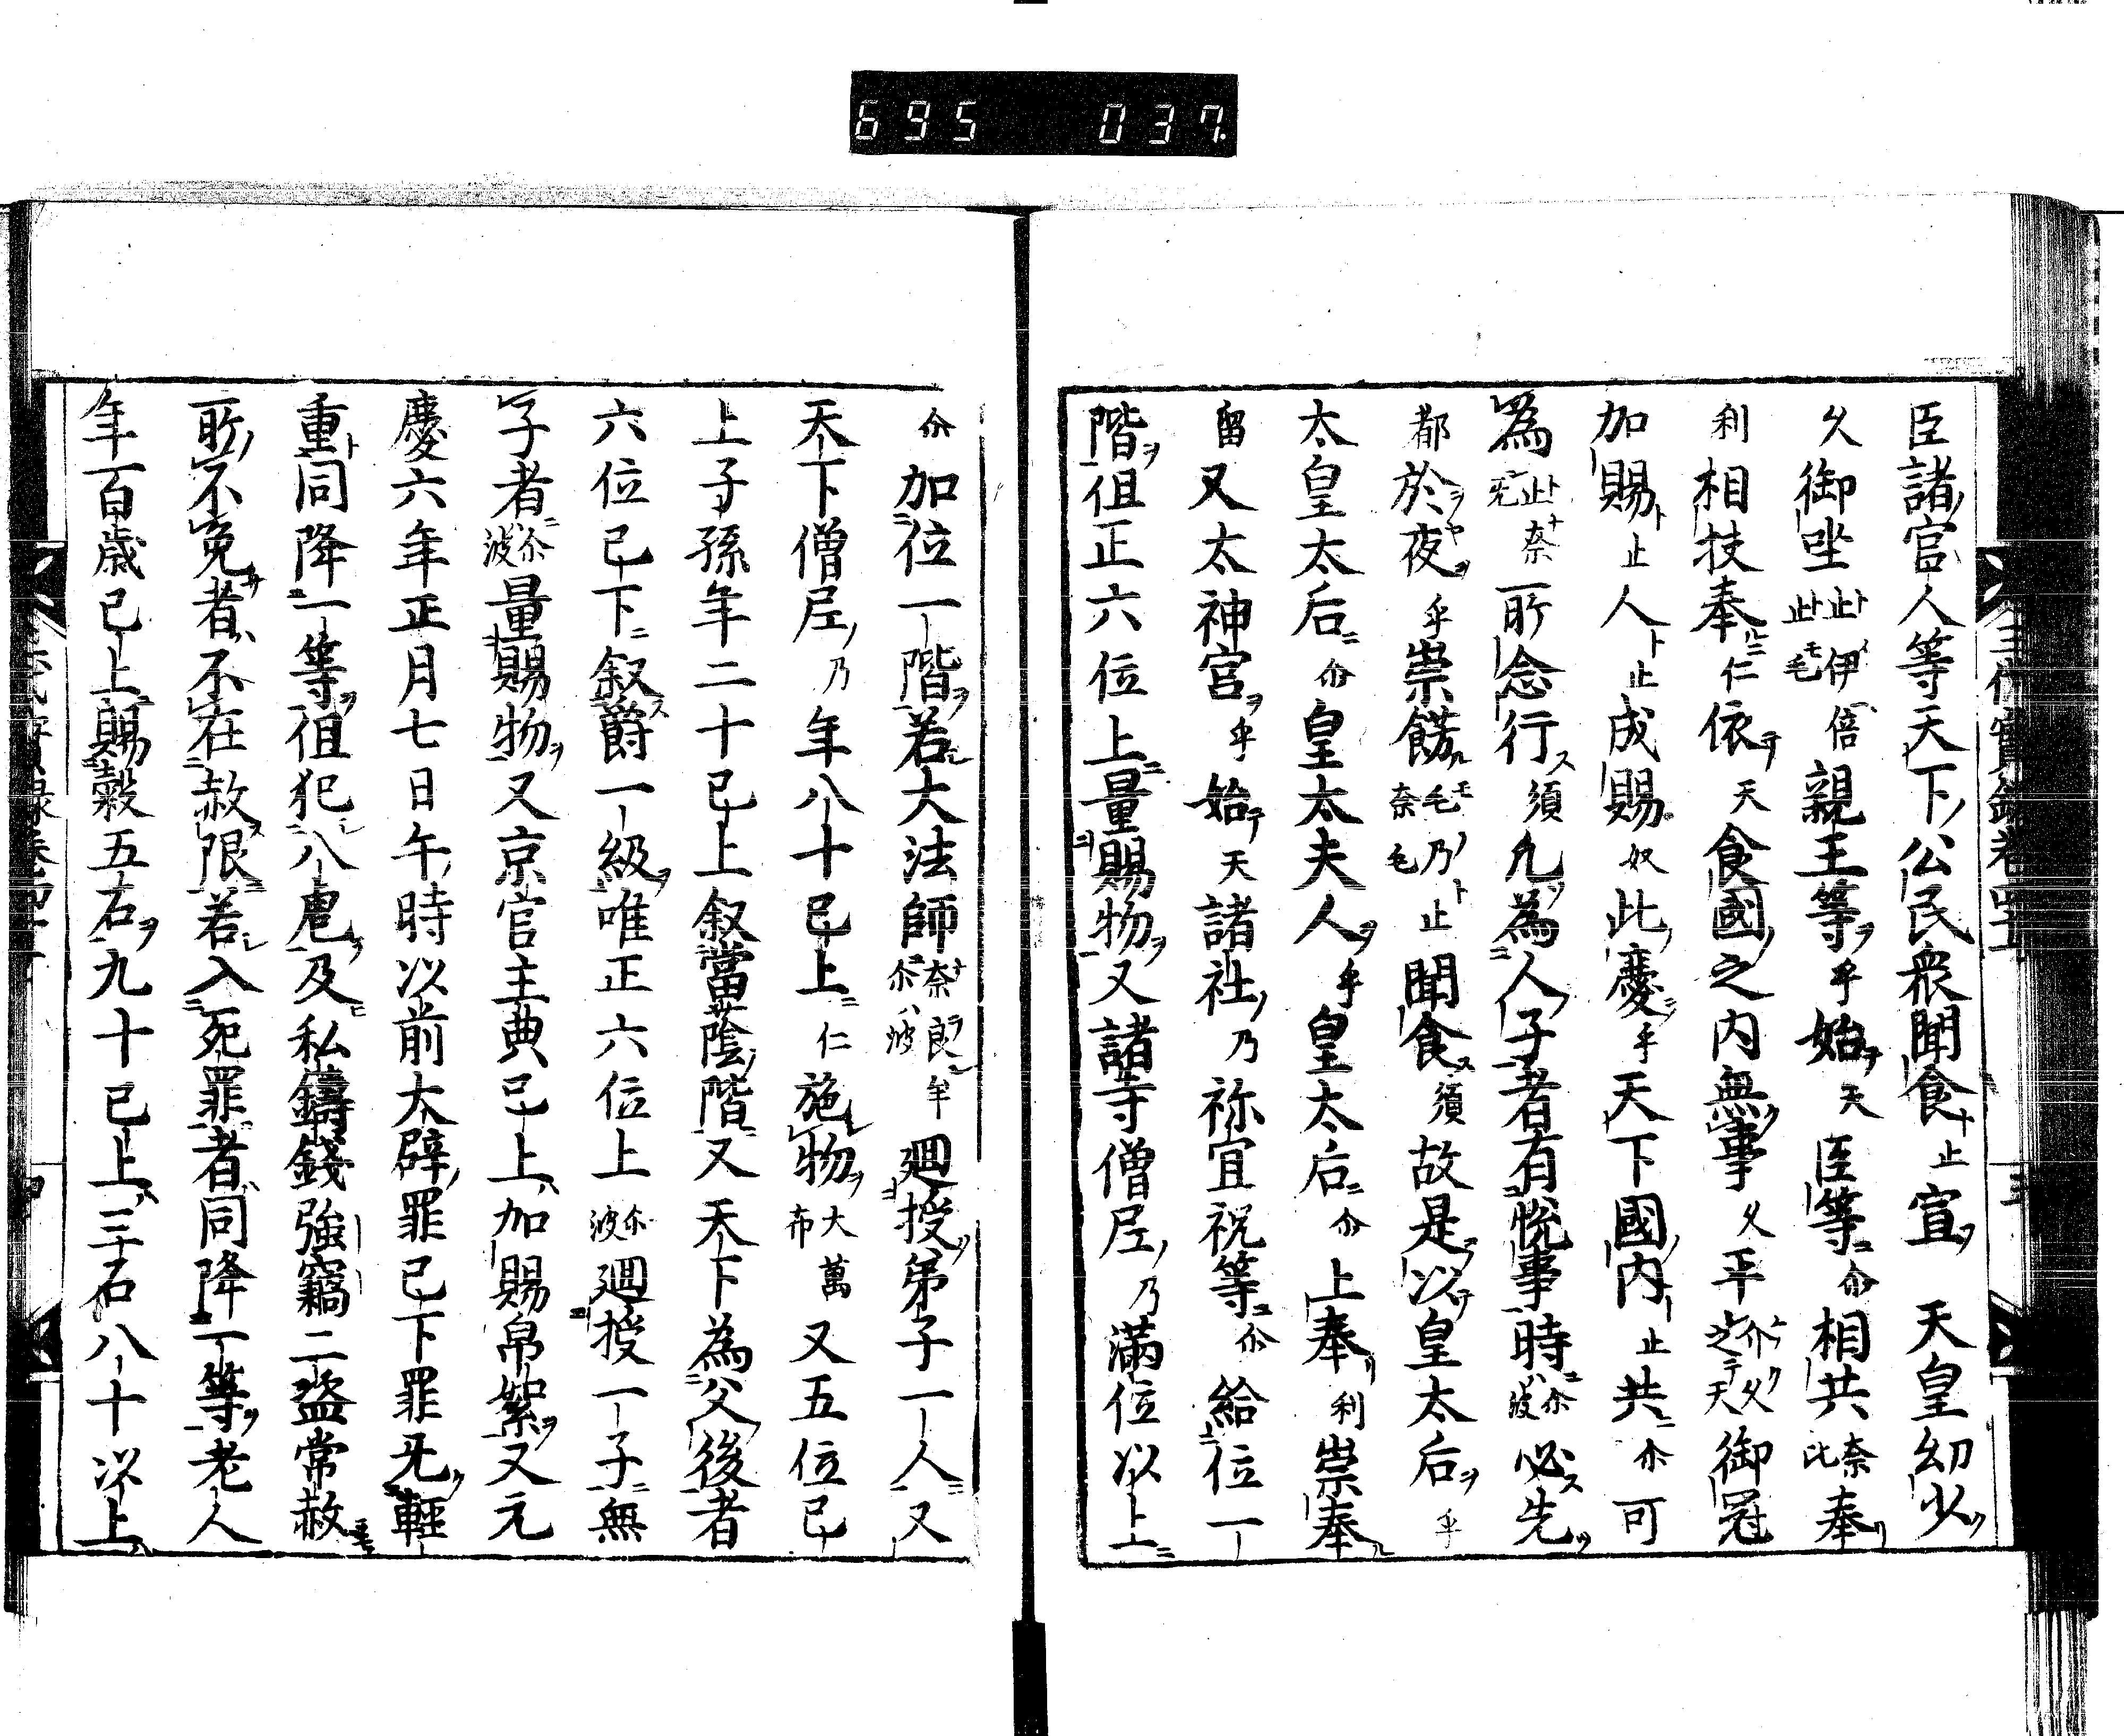 695 037
臣諸官人等天下公民衆聞食止宣 天皇幼少
久御坐止止毛伊倍親王等乎始天臣等尒相共奈比奉
利相扶奉仁依天食國之内無事久平介久之天御冠
加賜止人止成賜奴此慶乎天下國内止共尒可
為止奈所念行須凢為人子者有悦事時尒波必先
都於夜乎崇餝毛乃止奈毛聞食須故是以皇太后乎
太皇太后尒皇太夫人乎皇太后尒上奉利崇奉
留又太神宮乎始天諸社乃祢宜祝等尒給位一
階徂正六位上量賜物又諸寺僧尼乃滿位以上
尒加位一階若大法師奈良尒波牟廻授弟子一人又
天下僧尼乃年八十已上仁施物大布萬又五位已
上子孫年二十已上叙當蔭階又天下為父後者
六位已下叙爵一級唯正六位上尒波廻授一子無
子者尒波量賜物又京官主典已上加賜帛絮又元
慶六年正月七日午時以前大辟罪已下罪旡輕
重同降一等徂犯八虐及私鑄錢強竊二盜常赦
所不免者不在赦限若入死罪者同降一等老人
年百歳已上賜穀五石九十已上三石八十以上